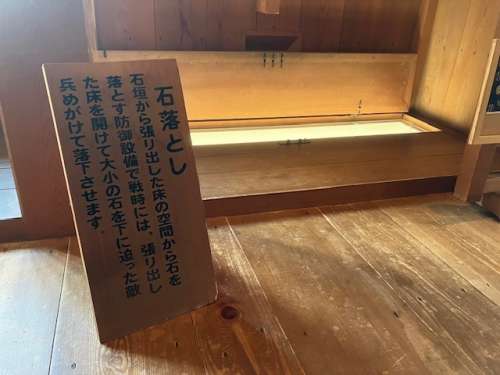 石落とし
石垣から張り出した床の空間から石を
落とす防御設備で戦時には、張り出し
た床を開けて大小の石を下に迫った敵
兵めがけて落下させます。